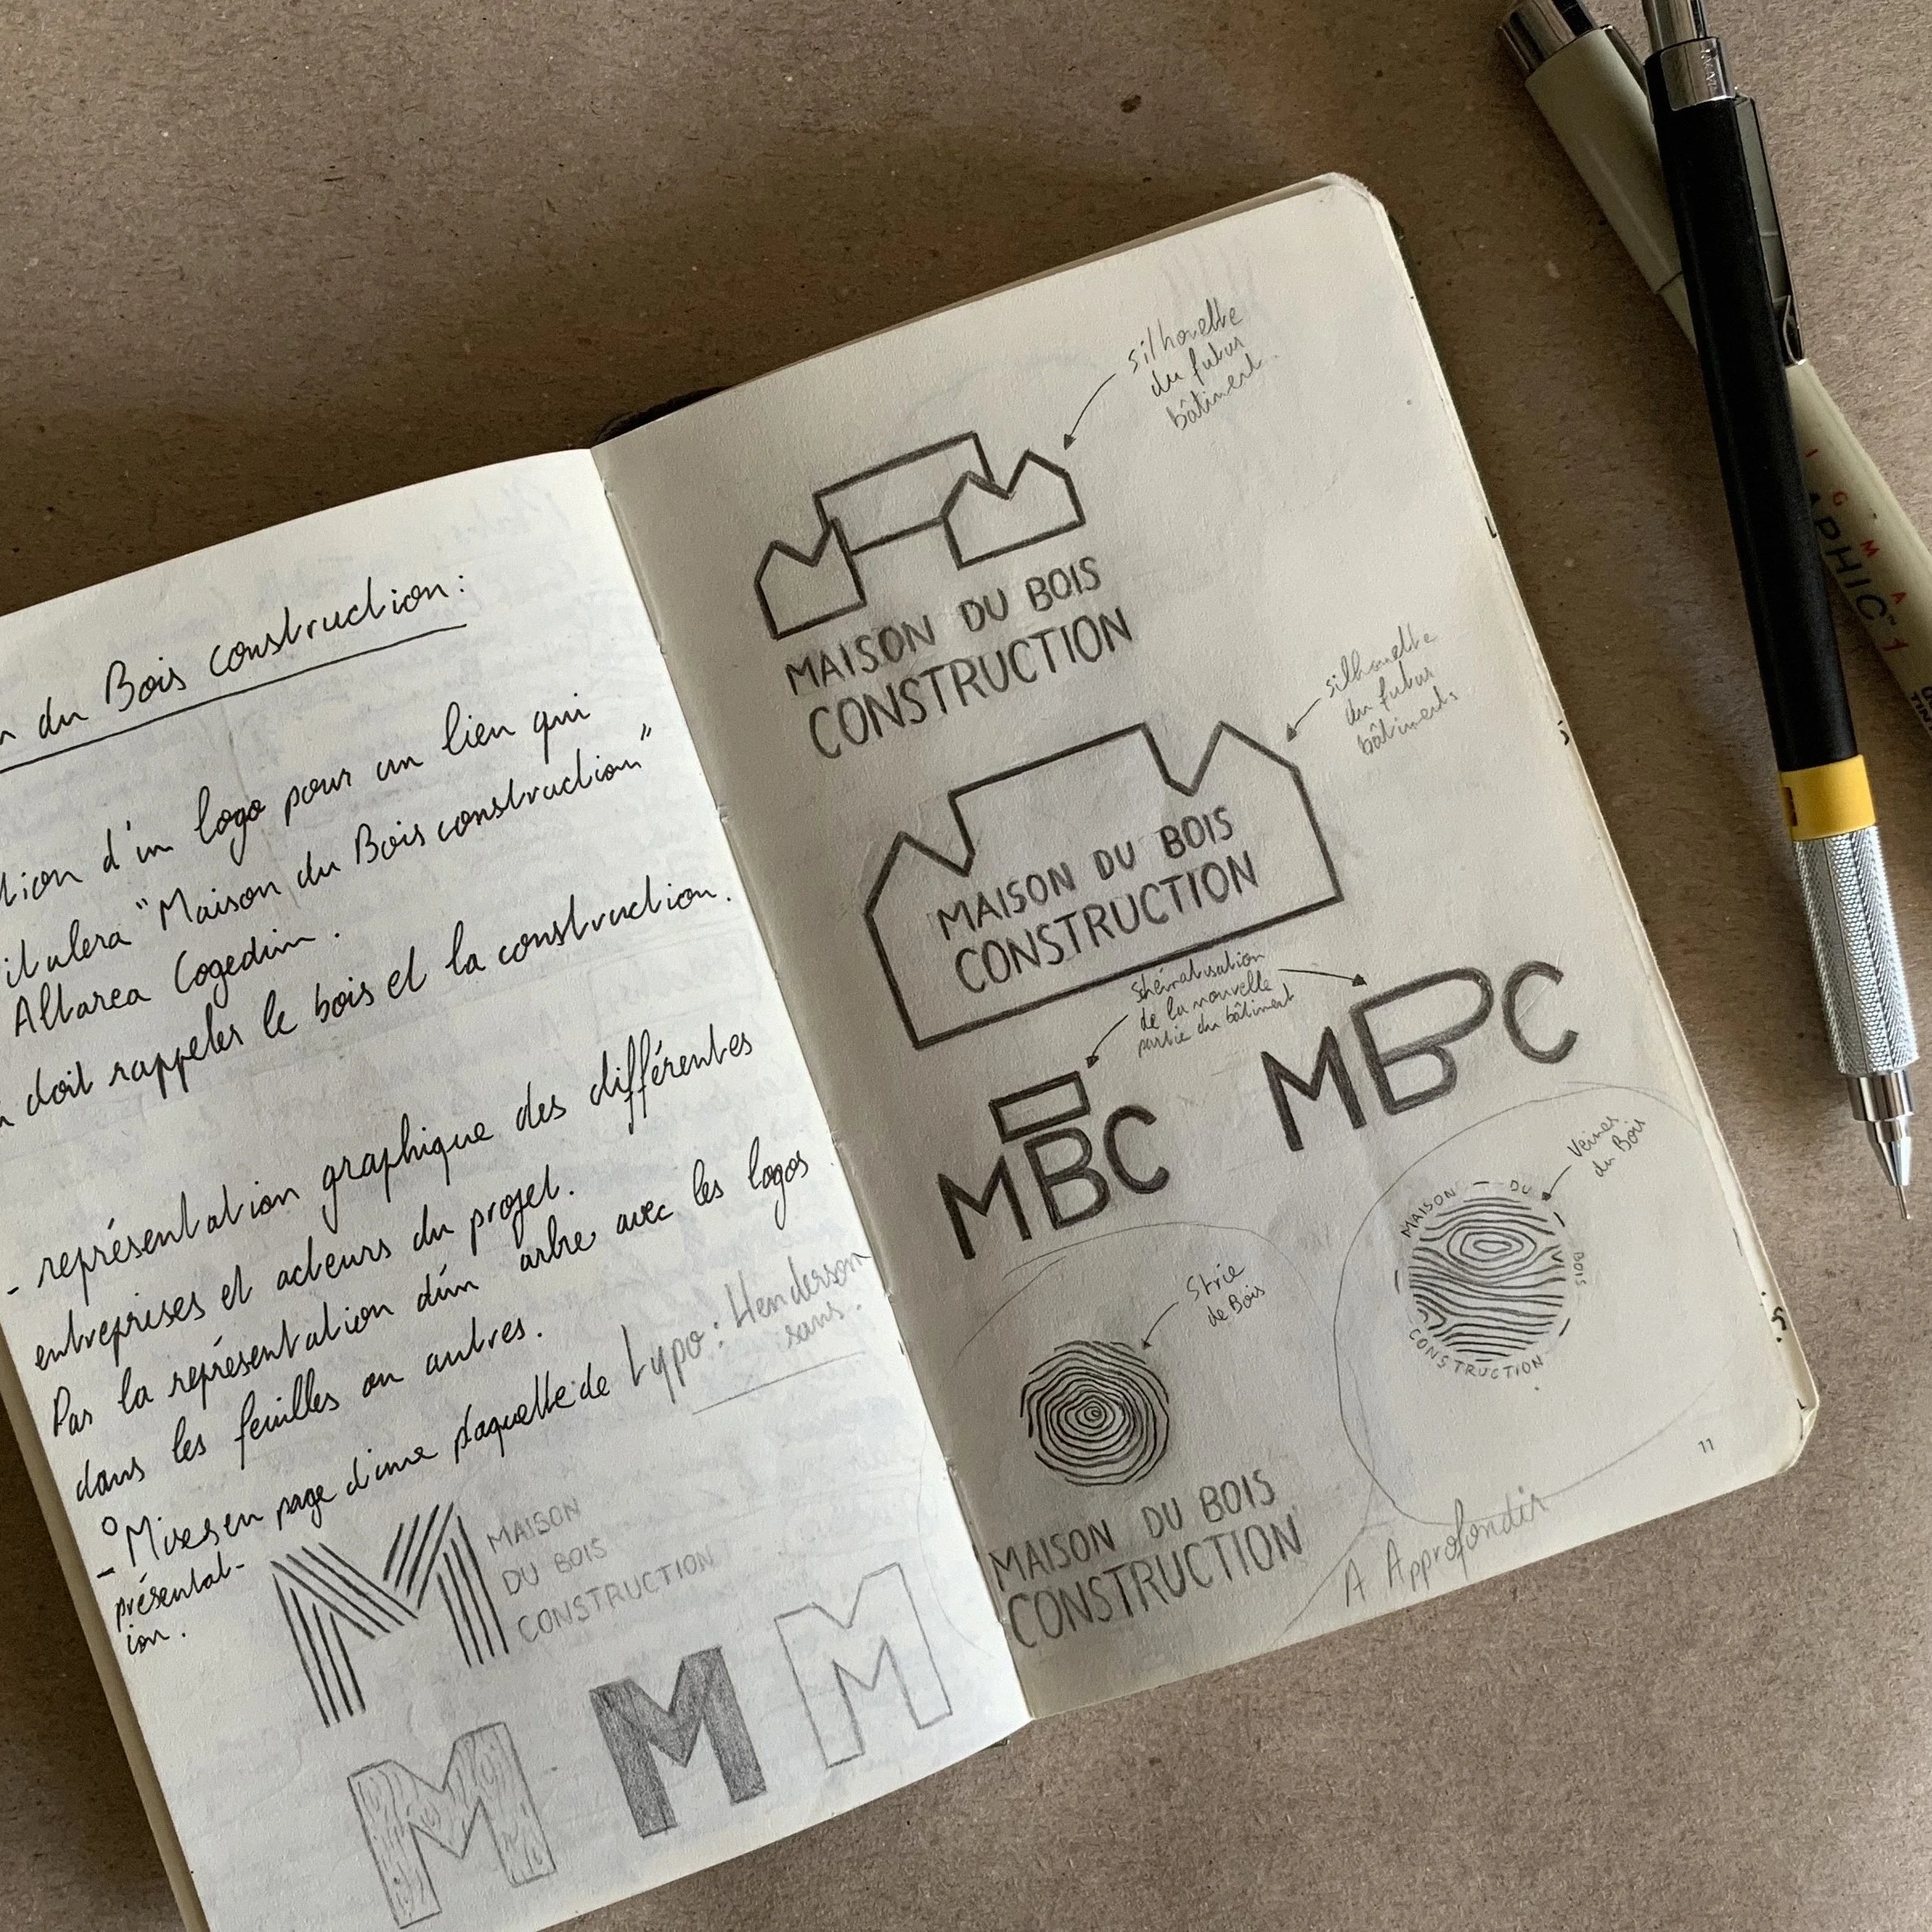 du Bois construction :
d'un logo pour un lieu qui
"Maison du Bois construction"
Altarea Cogedim.
doit rappeler le bois et la construction.
- représentation graphique des différentes
entreprises et acteurs du projet.
Pas la représentation d'un arbre avec les logos
dans les feuilles ou autres.
Typo : Henderson
sans.
- Mises en page d'une plaquette de
présentat-
ion.
MAISON
DU BOIS
CONSTRUCTION
M
M M M
silhouette
du futur
bâtiment
MAISON DU BOIS
CONSTRUCTION
silhouette
du futur
bâtiments
MAISON DU BOIS
CONSTRUCTION
shématisation
de la nouvelle
partie du bâtiment
MBC
MBC
Strie
de Bois
MAISON DU BOIS
CONSTRUCTION
Veines
du Bois
MAISON DU BOIS
CONSTRUCTION
11
A Approfondir